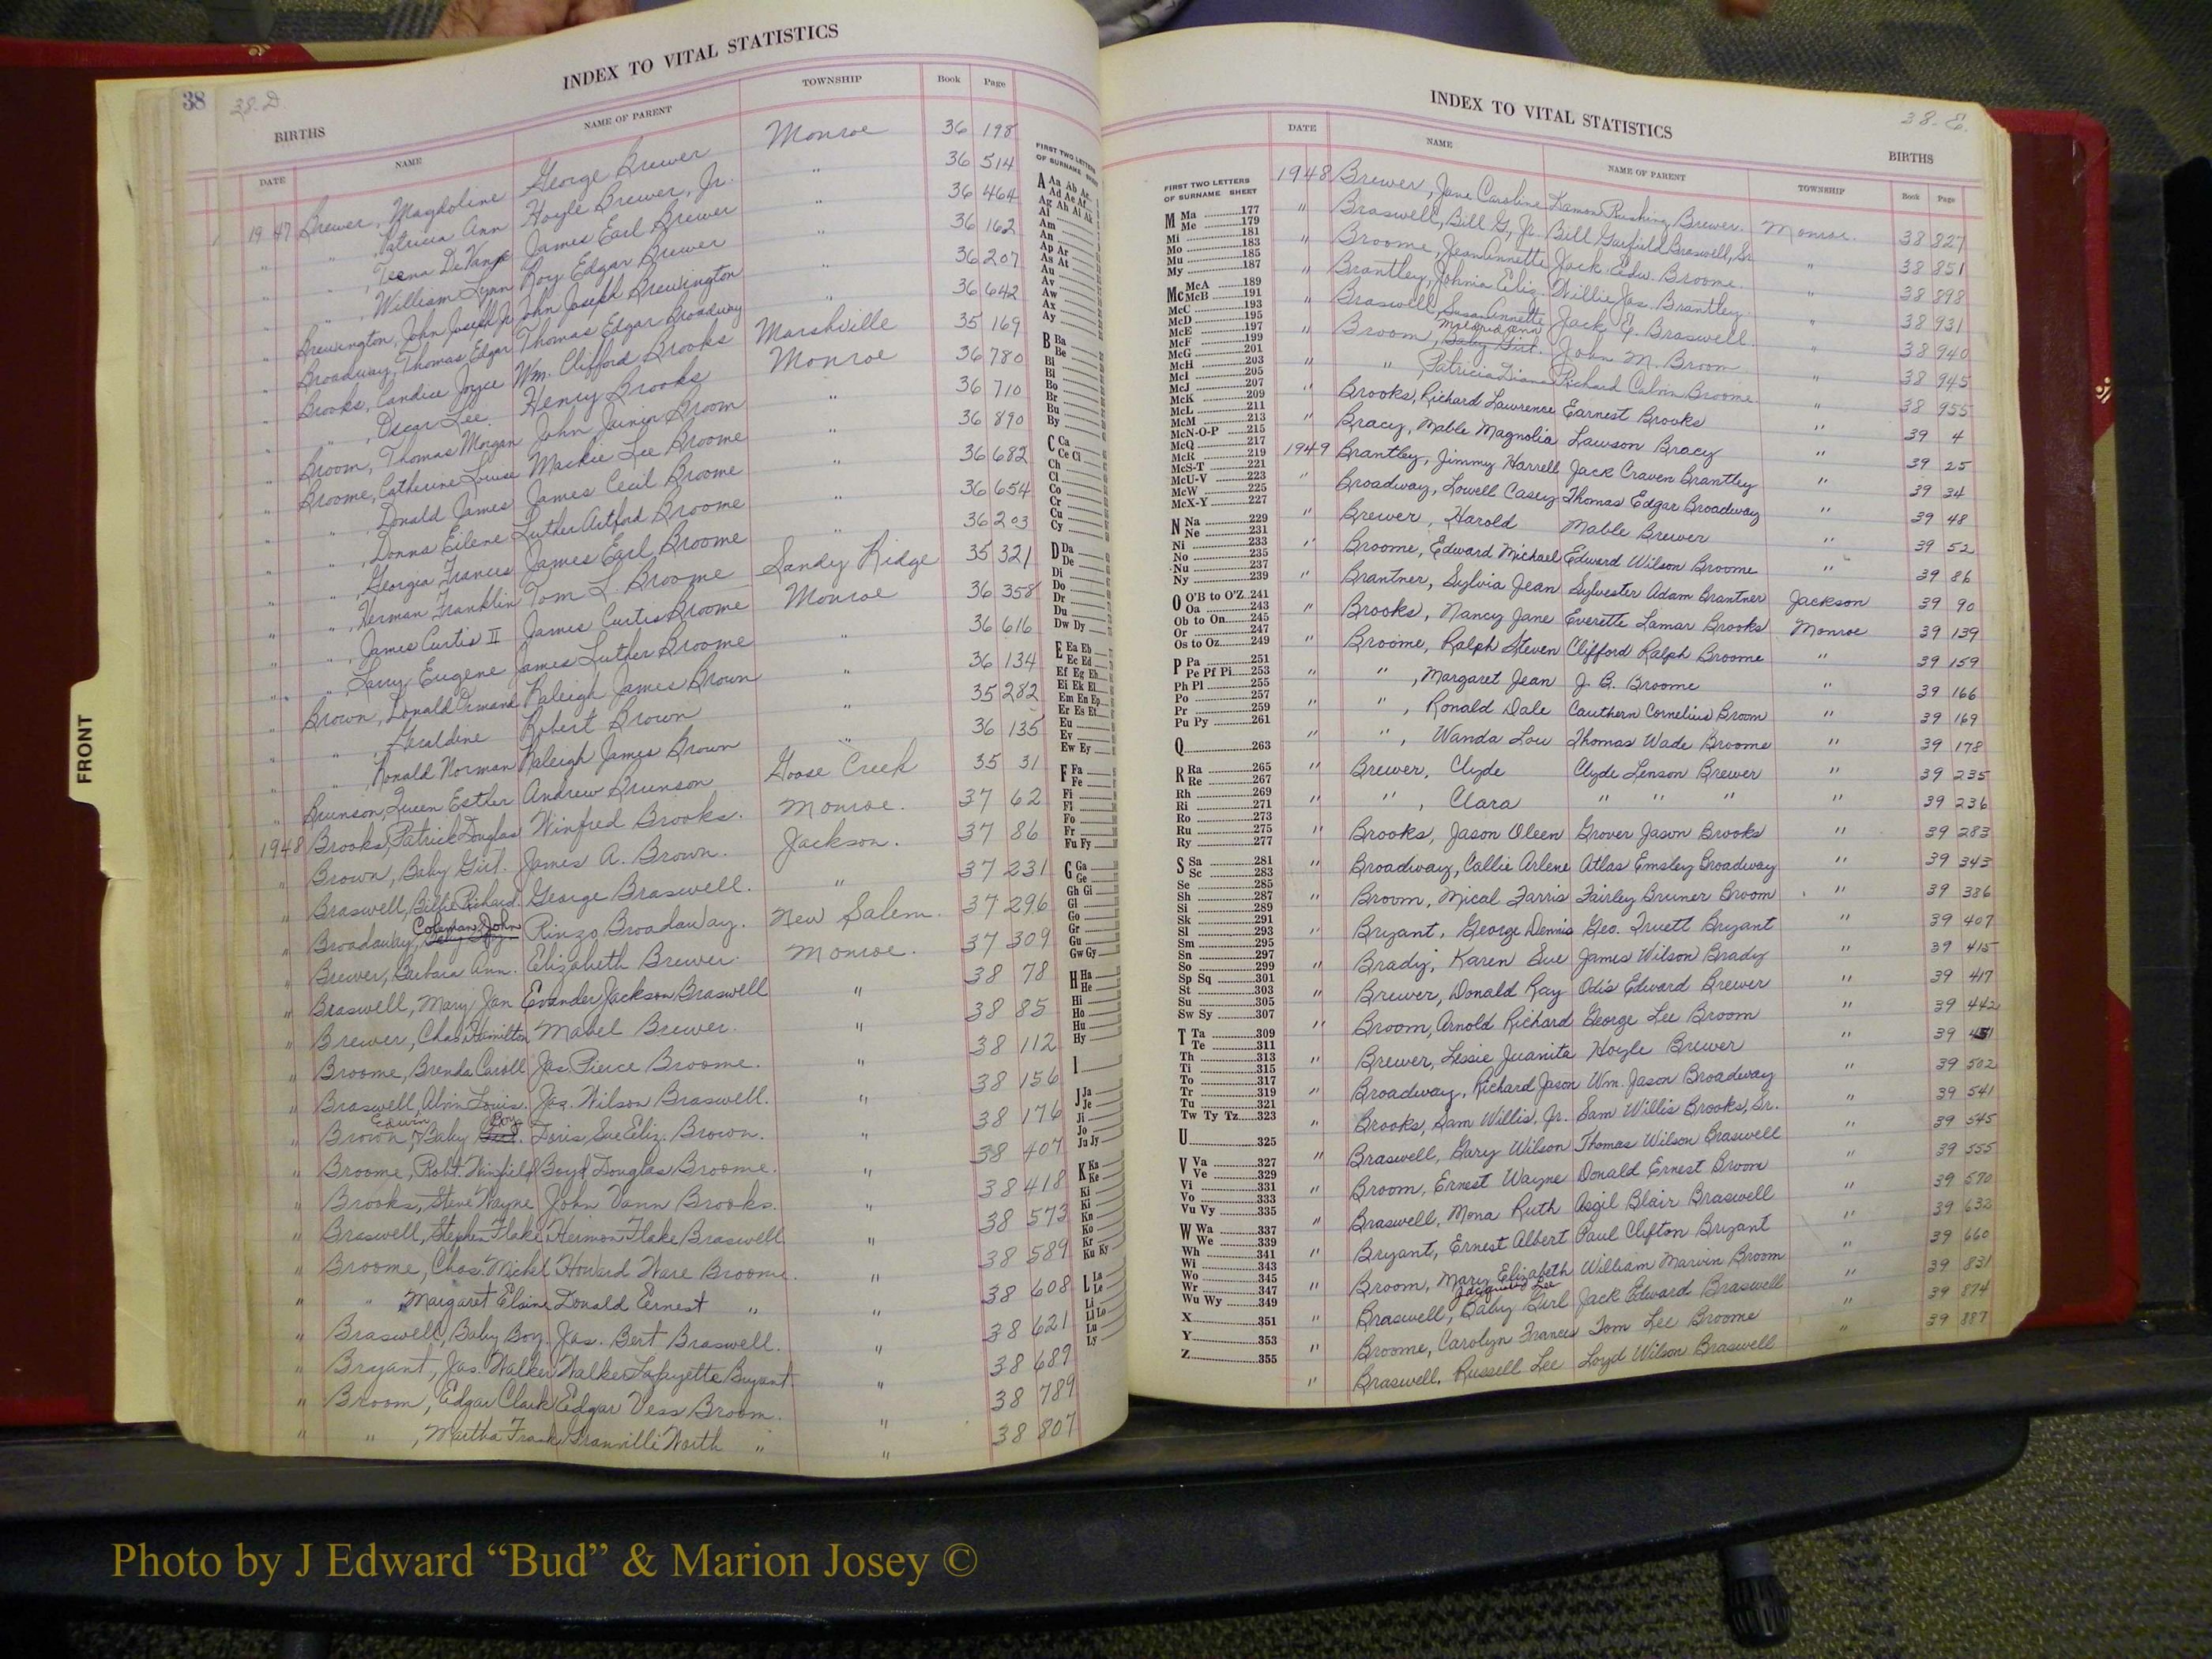 38
38-D.
INDEX TO VITAL STATISTICS
BIRTHS
DATE NAME NAME OF PARENT TOWNSHIP Book Page
1947 Brewer, Magdoline George Brewer Monroe 36 198
" " , Patricia Ann Hoyle Brewer, Jr. " 36 514
" " , Teena DeVange James Earl Brewer " 36 464
" " , William Lynn Roy Edgar Brewer " 36 162
" Brewington, John Joseph Jr John Joseph Brewington " 36 207
" Broadway, Thomas Edgar Thomas Edgar Broadway " 36 642
" Brooks, Candice Joyce Wm. Clifford Brooks Marshville 35 169
" " , Oscar Lee Henry Brooks Monroe 36 780
" Broom, Thomas Morgan John Broom " 36 710
" Broome, Catherine Louise Mackie Lee Broome " 36 890
" " , Donald James James Cecil Broome " 36 682
" " , Donna Eilene Luther Artford Broome " 36 654
" " , Georgia Frances James Earl Broome " 36 203
" " , Herman Franklin Tom L. Broome Sandy Ridge 35 321
" " , James Curtis II James Curtis Broome Monroe 36 358
" " , Larry Eugene James Luther Broome " 36 616
" Brown, Donald Ormand Raleigh James Brown " 36 134
" " , Geraldine Robert Brown " 35 282
" " , Ronald Norman Raleigh James Brown " 36 135
" Brunson, Queen Esther Andrew Brunson Goose Creek 35 31
1948 Brooks, Patrick Douglas Winfred Brooks. Monroe. 37 62
" Brown, Baby Girl. James A. Brown. Jackson. 37 86
" Braswell, Billie Richard. George Braswell. " 37 231
Coleman John
" Broadaway, Baby Boy Rinzo Broadaway. New Salem. 37 296
" Brewer, Barbara Ann. Elizabeth Brewer. Monroe. 37 309
" Braswell, Mary Jan Evander Jackson Braswell " 38 78
" Brewer, Chas Hamilton Mabel Brewer. " 38 85
" Broome, Brenda Caroll Jas. Pierce Broome. " 38 112
" Braswell, Alvin Louis. Jas. Wilson Braswell. " 38 156
Edwin Boy
" Brown, Baby Girl. Doris Sue Eliz. Brown. " 38 176
" Broome, Robt. Winfield Boyd Douglas Broome. " 38 407
" Brooks, Steve Wayne John Vann Brooks. " 38 418
" Braswell, Stephen Flake Hermon Flake Braswell " 38 573
" Broome, Chas. Michel Howard Ware Broome. " 38 589
" " Margaret Elaine Donald Eernest " " 38 608
" Braswell, Baby Boy. Jas. Bert Braswell. " 38 621
" Bryant, Jas. Walker Walker Lafayette Bryant. " 38 689
" Broom, Edgar Clark Edgar Vess Broom. " 38 789
" " , Martha Frank Granville Worth " " 38 807
FIRST TWO LETTERS
OF SURNAME SHEET
A Aa Ab Ac
Ad Ae Af
Ag Ah Ai Ak
Al
Am
An
Ap Ar
As At
Au
Av
Aw
Ax
Ay
B Ba
Be
Bi
Bl
Bo
Br
Bu
By
C Ca
Ce Ci
Ch
Cl
Co
Cr
Cu
Cy
D Da
De
Di
Do
Dr
Du
Dw Dy
E Ea Eb
Ec Ed
Ef Eg Eh
Ei Ek El
Em En Ep
Er Es Et
Eu
Ev
Ew Ey
F Fa
Fe
Fi
Fl
Fo
Fr
Fu Fy
G Ga
Ge
Gh Gi
Gl
Go
Gr
Gu
Gw Gy
H Ha
He
Hi
Ho
Hu
Hy
I
J Ja
Je
Ji
Jo
Ju Jy
K Ka
Ke
Ki
Kl
Kn
Ko
Kr
Ku Ky
L La
Le
Li
Ll Lo
Lu
Ly
FRONT
38-E.
INDEX TO VITAL STATISTICS
BIRTHS
DATE NAME NAME OF PARENT TOWNSHIP Book Page
1948 Brewer, Jane Caroline Lamon Rushing Brewer. Monroe. 38 827
" Braswell, Bill G., Jr. Bill Garfield Braswell, Sr. " 38 851
" Broome, Jean Annette Jack Edw. Broome. " 38 898
" Brantley, Johnia Eliz. Willie Jas. Brantley. " 38 931
" Braswell, Susan Annette Jack E. Braswell. " 38 940
Ann
" Broom, Baby Girl. John M. Broom " 38 945
" " , Patricia Diana Richard Calvin Broome. " 38 955
" Brooks, Richard Lawrence Earnest Brooks " 39 4
" Bracy, Mable Magnolia Lawson Bracy " 39 25
1949 Brantley, Jimmy Harrell Jack Craven Brantley " 39 34
" Broadway, Lowell Casey Thomas Edgar Broadway " 39 48
" Brewer, Harold Mable Brewer " 39 52
" Broome, Edward Michael Edward Wilson Broome " 39 86
" Brantner, Sylvia Jean Sylvester Adam Brantner Jackson 39 90
" Brooks, Nancy Jane Everette Lamar Brooks Monroe 39 139
" Broome, Ralph Steven Clifford Ralph Broome " 39 159
" " , Margaret Jean J. B. Broome " 39 166
" " , Ronald Dale Cauthern Cornelius Broom " 39 169
" " , Wanda Lou Thomas Wade Broome " 39 178
" Brewer, Clyde Clyde Lenson Brewer " 39 235
" " , Clara " " " " 39 236
" Brooks, Jason Oleen Grover Jason Brooks " 39 283
" Broadway, Callie Arlene Atlas Emsley Broadway " 39 343
" Broom, Mical Farris Fairley Bruner Broom " 39 386
" Bryant, George Dennis Geo. Truett Bryant " 39 407
" Brady, Karen Sue James Wilson Brady " 39 415
" Brewer, Donald Ray Odis Edward Brewer " 39 417
" Broom, Arnold Richard George Lee Broom " 39 442
" Brewer, Lessie Juanita Hoyle Brewer " 39 451
" Broadway, Richard Jason Wm. Jason Broadway " 39 502
" Brooks, Sam Willis, Jr. Sam Willis Brooks, Sr. " 39 541
" Braswell, Gary Wilson Thomas Wilson Braswell " 39 545
" Broom, Ernest Wayne Donald Ernest Broom " 39 555
" Braswell, Mona Ruth Asgil Blair Braswell " 39 570
" Bryant, Ernest Albert Paul Clifton Bryant " 39 632
" Broom, Mary Elizabeth William Marvin Broom " 39 660
Jacqueline Lee
" Braswell, Baby Girl Jack Edward Braswell " 39 831
" Broome, Carolyn Frances Tom Lee Broome " 39 874
" Braswell, Russell Lee Loyd Wilson Braswell " 39 887
FIRST TWO LETTERS
OF SURNAME SHEET
M Ma 177
Me 179
Mi 181
Mo 183
Mu 185
My 187
Mc McA 189
McB 191
McC 193
McD 195
McE 197
McF 199
McG 201
McH 203
McI 205
McJ 207
McK 209
McL 211
McM 213
McN-O-P 215
McQ 217
McR 219
McS-T 221
McU-V 223
McW 225
McX-Y 227
N Na 229
Ne 231
Ni 233
No 235
Nu 237
Ny 239
O O'B to O'Z 241
Oa 243
Ob to On 245
Or 247
Os to Oz 249
P Pa 251
Pe Pf Pi 253
Ph Pl 255
Po 257
Pr 259
Pu Py 261
Q 263
R Ra 265
Re 267
Rh 269
Ri 271
Ro 273
Ru 275
Ry 277
S Sa 281
Sc 283
Se 285
Sh 287
Si 289
Sk 291
Sl 293
Sm 295
Sn 297
So 299
Sp Sq 301
St 303
Su 305
Sw Sy 307
T Ta 309
Te 311
Th 313
Ti 315
To 317
Tr 319
Tu 321
Tw Ty Tz 323
U 325
V Va 327
Ve 329
Vi 331
Vo 333
Vu Vy 335
W Wa 337
We 339
Wh 341
Wi 343
Wo 345
Wr 347
Wu Wy 349
X 351
Y 353
Z 355
Photo by J Edward “Bud” & Marion Josey ©